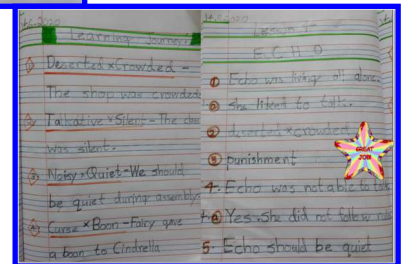 Learning Journey
① Deserted × Crowded -
The shop was crowded
② Talkative × Silent - The class
was silent.
③ Noisy × Quiet - We should
be quiet during assembly
④ Curse × Boon - Fairy gave
a boon to Cindrella
Lesson 4-
ECHO
① Echo was all alone
② She liked to talk.
③ deserted × crowded
③ punishment
4. Echo was not able to talk
Yes, She did not follow rules
5. Echo should be quiet
GREAT
JOB!